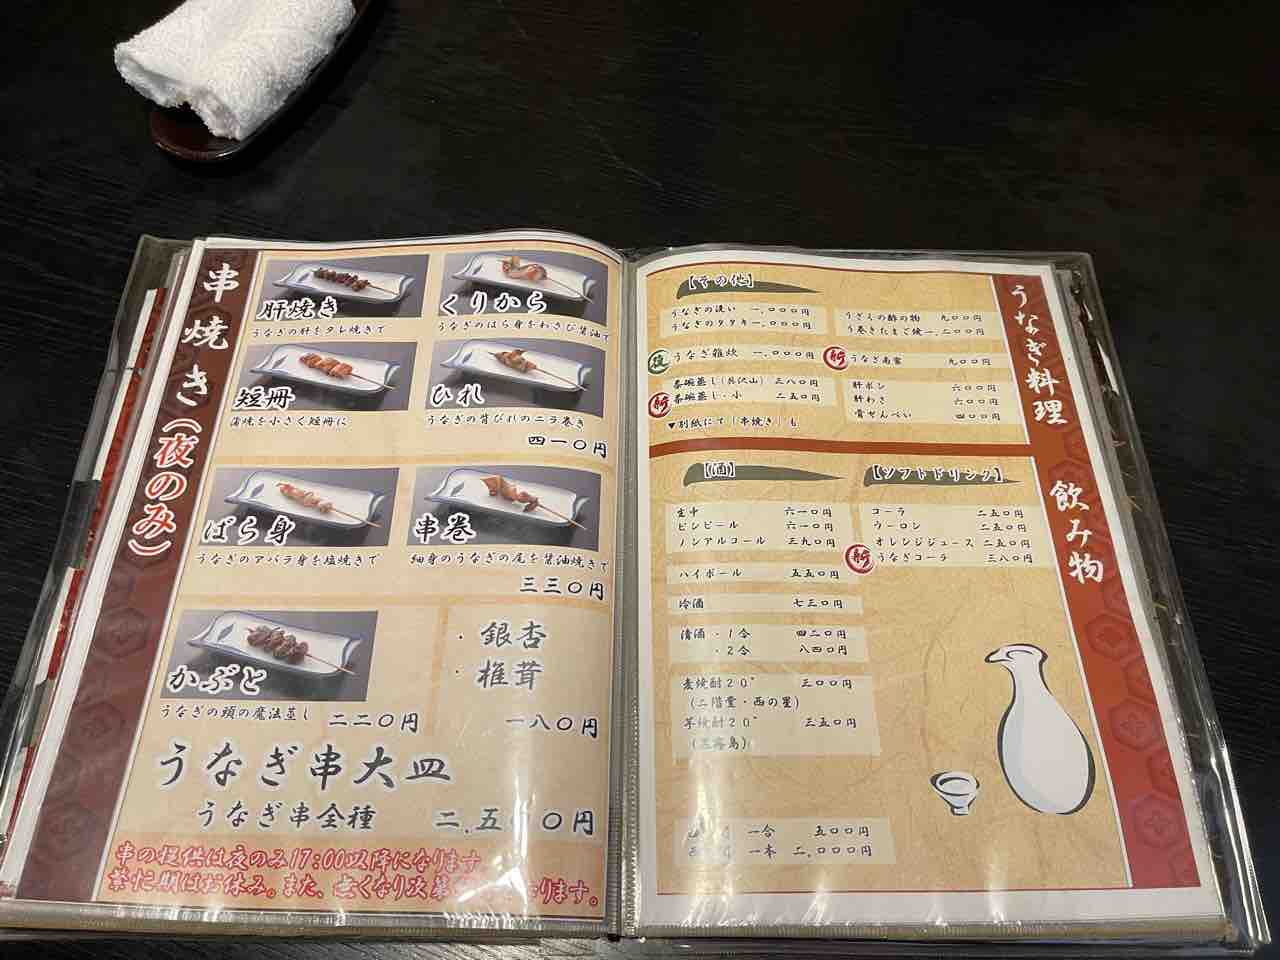 串焼き(夜のみ)
肝焼き
うなぎの肝をタレ焼きで
くりから
うなぎのばら身をわさび醤油で
短冊
蒲焼を小さく短冊に
ひれ
うなぎの背びれのニラ巻き
四一〇円
ばら身
うなぎのアバラ身を塩焼きで
串巻
細身のうなぎの尾を醤油焼きで
三三〇円
かぶと
うなぎの頭の魔法蒸し 二二〇円
・銀杏
・椎茸
一八〇円
うなぎ串大皿
うなぎ串全種 二.五〇〇円
串の提供は夜のみ17:00以降になります
繁忙期はお休み。また、無くなり次第
ります。
うなぎ料理
【その他】
うなぎの洗い 一,〇〇〇円
うなぎのタタキ 一,〇〇〇円
うざくの酢の物 九〇〇円
う巻きたまご焼 一,二〇〇円
夜 うなぎ雑炊 一,〇〇〇円
新 うなぎ南蛮 九〇〇円
茶碗蒸し(具沢山) 三八〇円
新 茶碗蒸し・小 二五〇円
肝ポン 六〇〇円
肝わさ 六〇〇円
骨せんべい 四〇〇円
▼別紙にて「串焼き」も
飲み物
【酒】
生中 六一〇円
ビンビール 六一〇円
ノンアルコール 三九〇円
ハイボール 五五〇円
冷酒 七三〇円
清酒・1合 四二〇円
・2合 八四〇円
麦焼酎20° 三〇〇円
(二階堂・西の星)
芋焼酎20° 三五〇円
霧島)
一合 五〇〇円
一本 二,〇〇〇円
【ソフトドリンク】
コーラ 二五〇円
ウーロン 二五〇円
オレンジジュース 二五〇円
新 うなぎコーラ 三八〇円